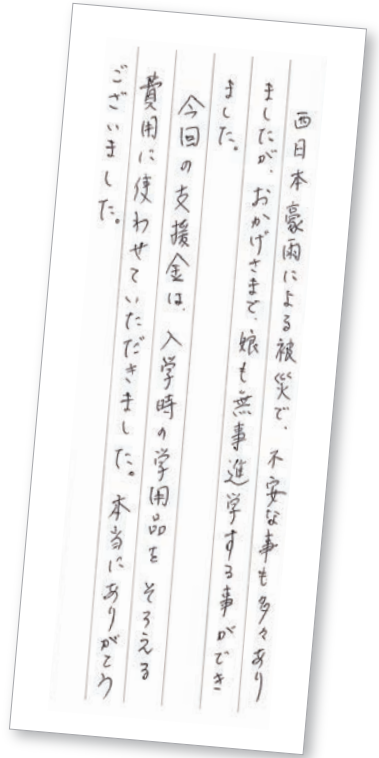 西日本豪雨による被災で、不安な事も多々あり
ましたが、おかげさまで、娘も無事進学する事ができ
ました。
今回の支援金は、入学時の学用品をそろえる
費用に使わせていただきました。本当にありがとう
ございました。